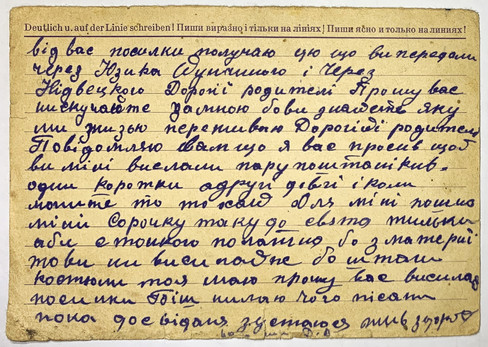 Deutlich u. auf der Linie schreiben! Пиши виразно і тільки на лініях! Пиши ясно и только на линиях!
від вас посилки получаю цю що ви передали
через Юзика і Через
Нідвецкого Дорогі родителі Прошу вас
за мною бо ви знаєте яку
ми жизью переживаю Дорогіді родителі
Повідомляю вам що я вас просив щоб
ви міні вислали пару
один коротки а другі довгі і коли
маєте то то для міні пошит
міні Сорочку таку до свято тильки
аби с тонкого полатна бо з материї
то ви ни висилайте бо штани
костюми тоя маю прошу вас висилат
посилки Більш нимаю чого писати
пока досвіданя зустаюся жив здоров